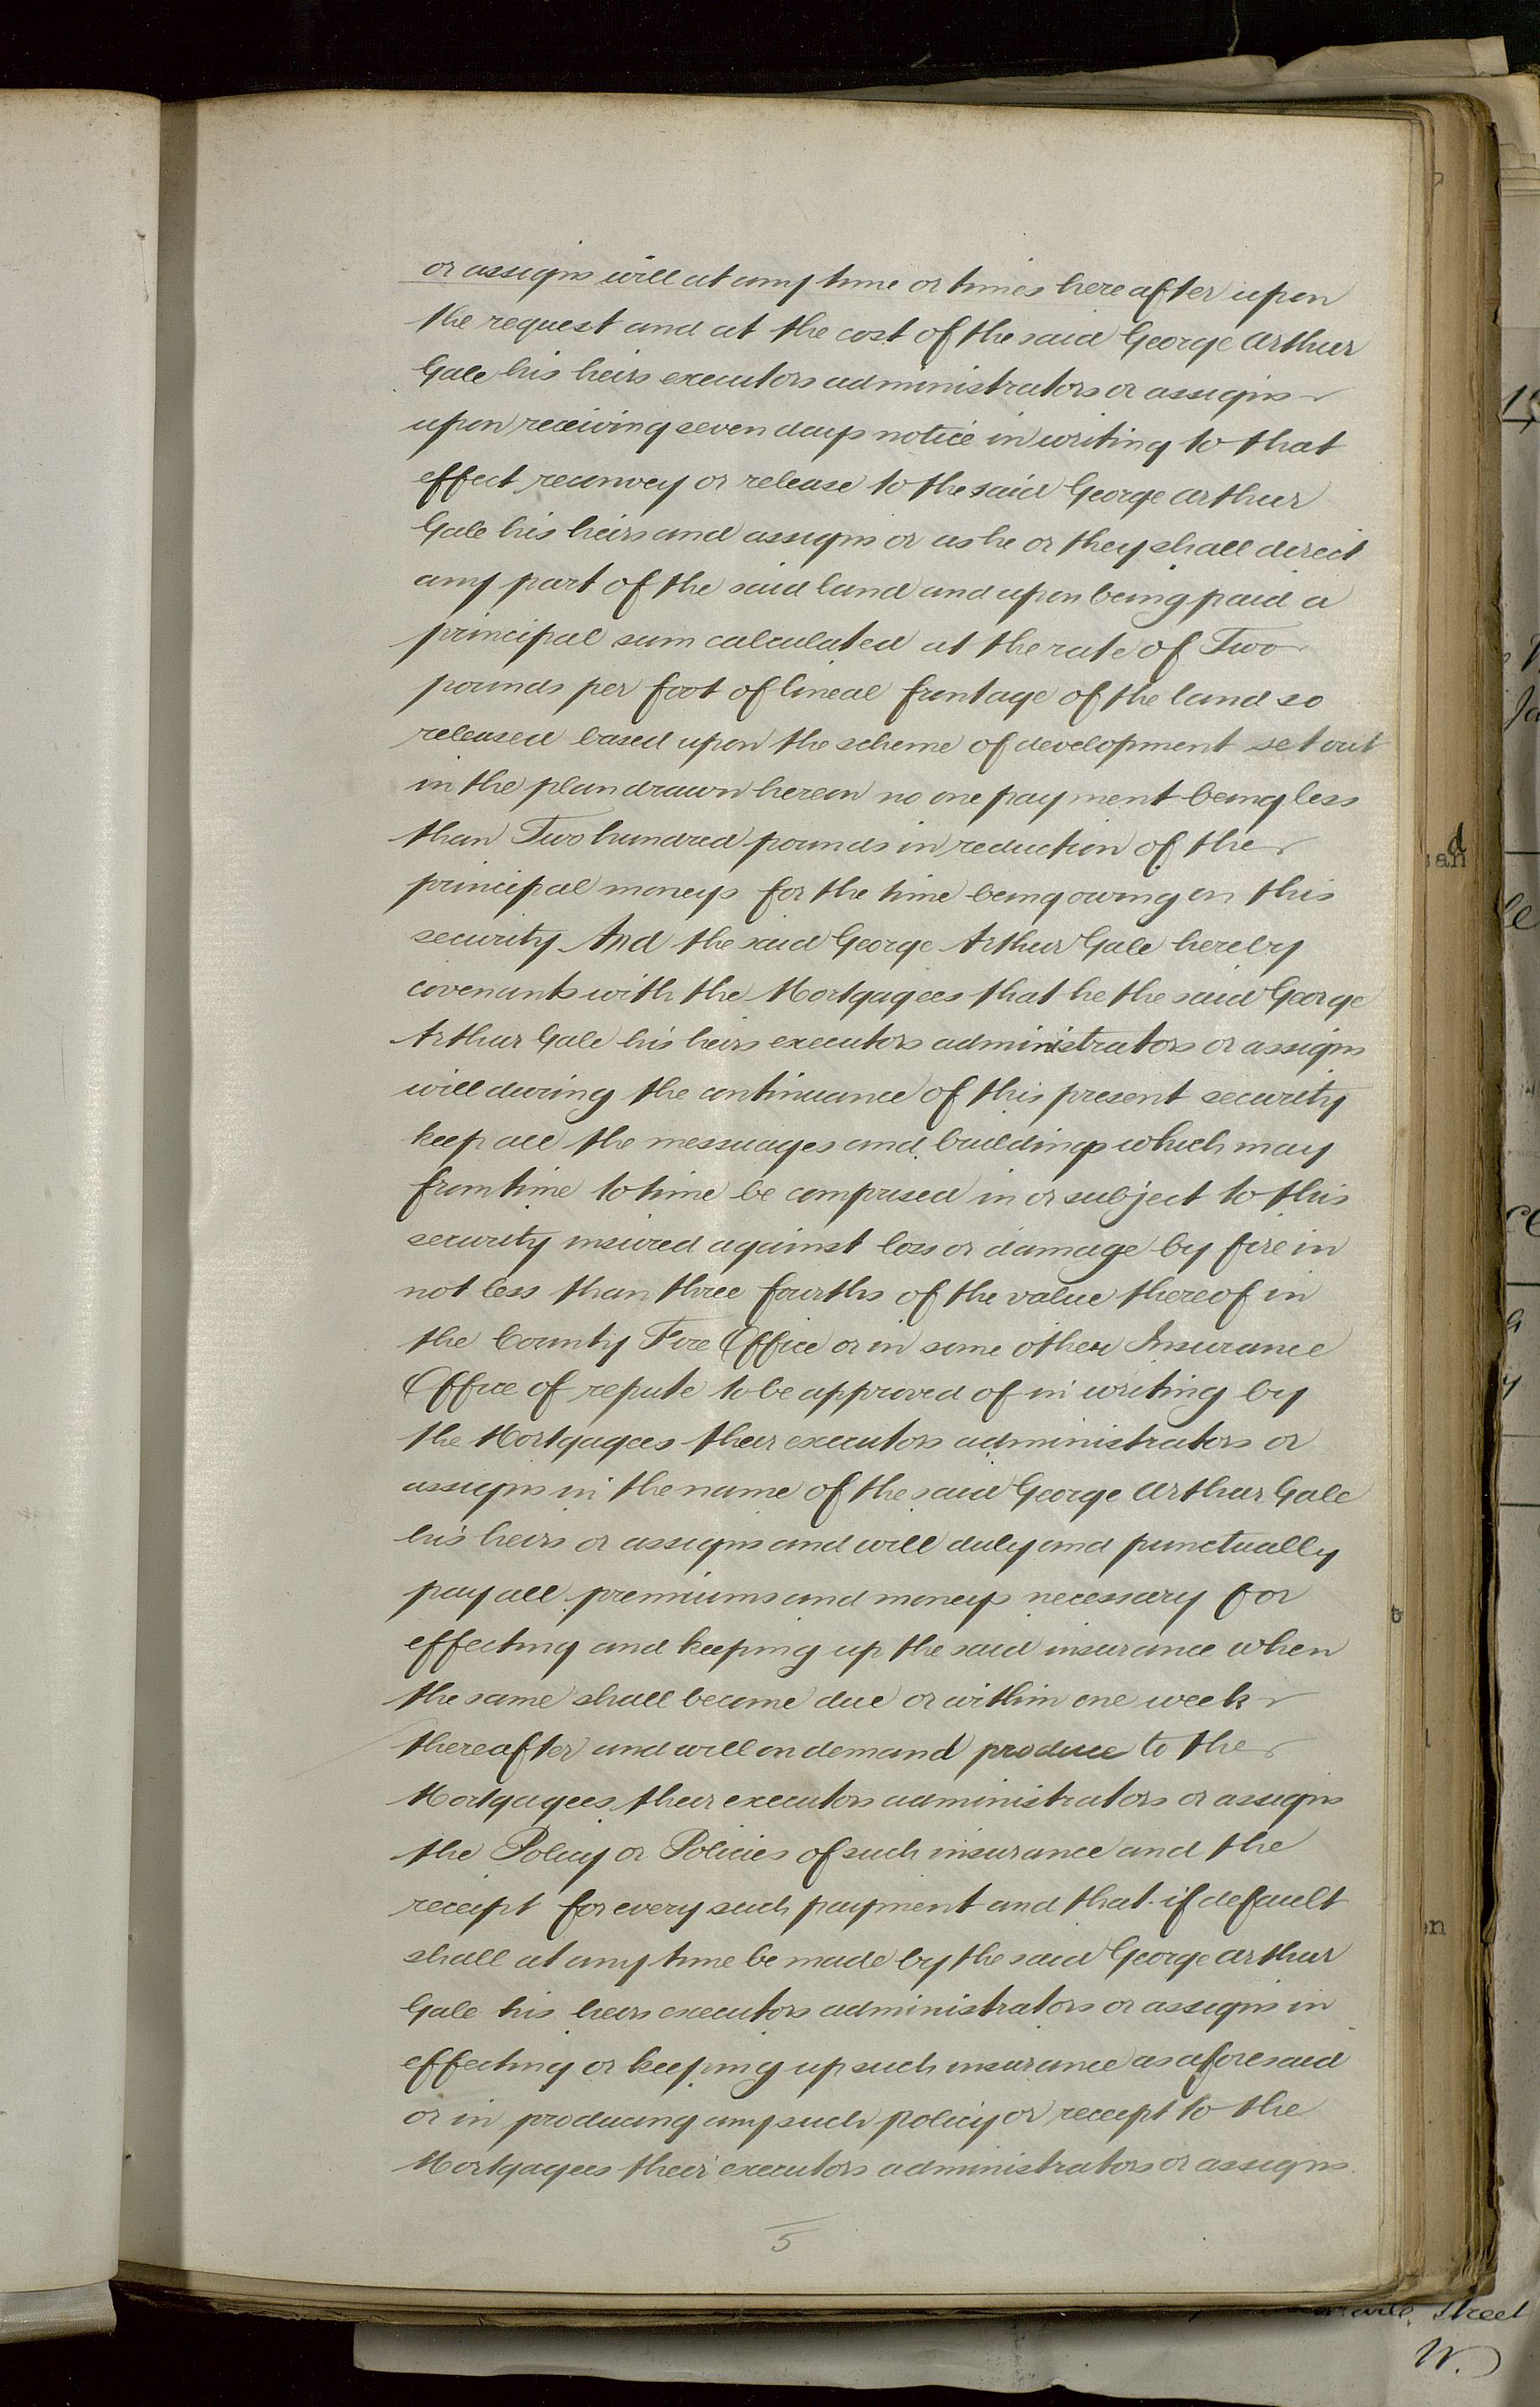 or assigns will at any time or times hereafter upon
the request and at the cost of the said George Arthur
Gale his heirs executors administrators or assigns
upon receiving seven days notice in writing to that
effect reconvey or release to the said George Arthur
Gale his heirs and assigns or as he or they shall direct
any part of the said land and upon being paid a
principal sum calculated at the rate of Two
pounds per foot of lineal frontage of the land so
released based upon the scheme of development set out
in the plan drawn hereon no one payment being less
than Two hundred pounds in reduction of the
principal moneys for the time being owing on this
security And the said George Arthur Gale hereby
covenants with the Mortgagees that he the said George
Arthur Gale his heirs executors administrators or assigns
will during the continuance of this present security
keep all the messuages and buildings which may
from time to time be comprised in or subject to this
security insured against loss or damage by fire in
not less than three fourths of the value thereof in
the County Fire Office or in some other Insurance
Office of repute to be approved of in writing by
the Mortgagees their executors administrators or
assigns in the name of the said George Arthur Gale
his heirs or assigns and will duly and punctually
pay all premiums and moneys necessary for
effecting and keeping up the said insurance when
the same shall become due or within one week
thereafter and will on demand produce to the
Mortgagees their executors administrators or assigns
the Policy or Policies of such insurance and the
receipt for every such payment and that if default
shall at any time be made by the said George Arthur
Gale his heirs executors administrators or assigns in
effecting or keeping up such insurance as aforesaid
or in producing any such policy or receipt to the
Mortgagees their executors administrators or assigns
5
Street
W.